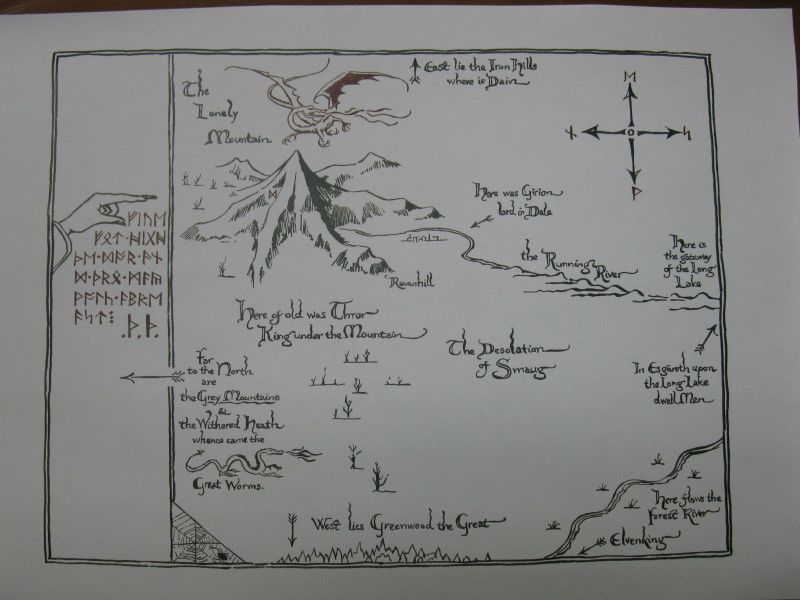 The
Lonely
Mountain
East lie the Iron Hills
where is Dain
ᛖ
ᚾ
ᛋ
ᚹ
ᛞ
Here was Girion
lord in Dale
ᚠᛁᚢᛖ
ᚠᛟᛏ·ᚻᛁᚷᚻ
ᚦᛖ·ᛞᚩᚱ·ᚪᚾ
ᛞ·ᚦᚱᛟ·ᛗᚪᚣ
ᚪᛋᛏ᛬
.ᚦ.ᚦ.
the Running
River
Here is
the gateway
of the Long
Lake
Ravenhill
Here of old was Thror
King under the Mountain
The Desolation
of Smaug
Far
to the North
are
the Grey Mountains
&
the Withered Heath
whence came the
Great Worms.
In Esgaroth upon
the Long Lake
dwell Men
West lies Greenwood the Great
Here flows the
Forest River
Elvenking